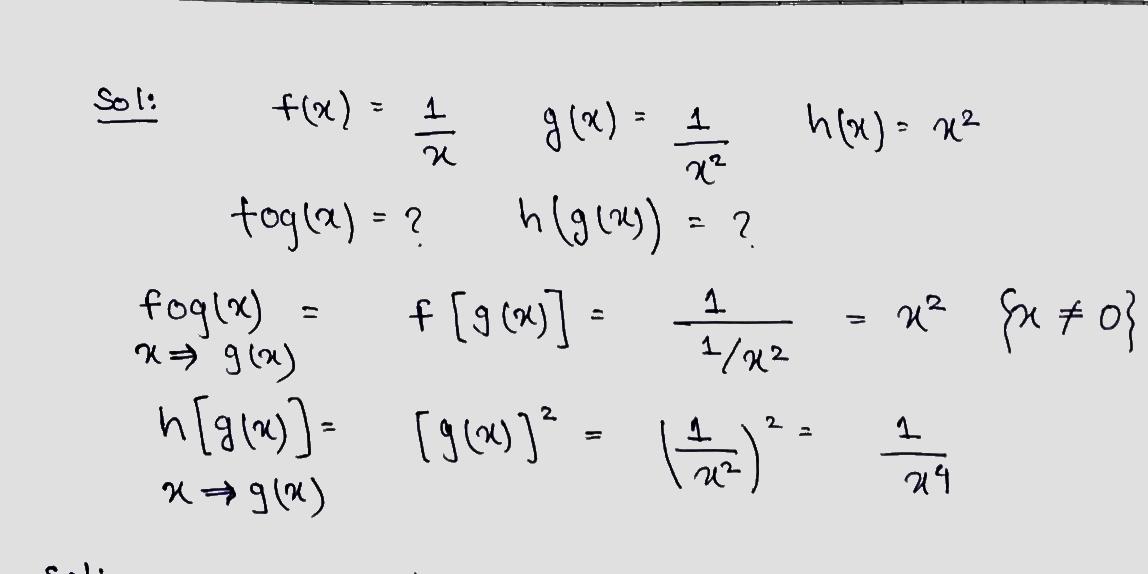 Sol: f(x) = 1/x g(x) = 1/x² h(x) = x²
fog(x) = ? h(g(x)) = ?
fog(x) = f[g(x)] = 1/(1/x²) = x² {x ≠ 0}
x ⇒ g(x)
h[g(x)] = [g(x)]² = (1/x²)² = 1/x⁴
x ⇒ g(x)